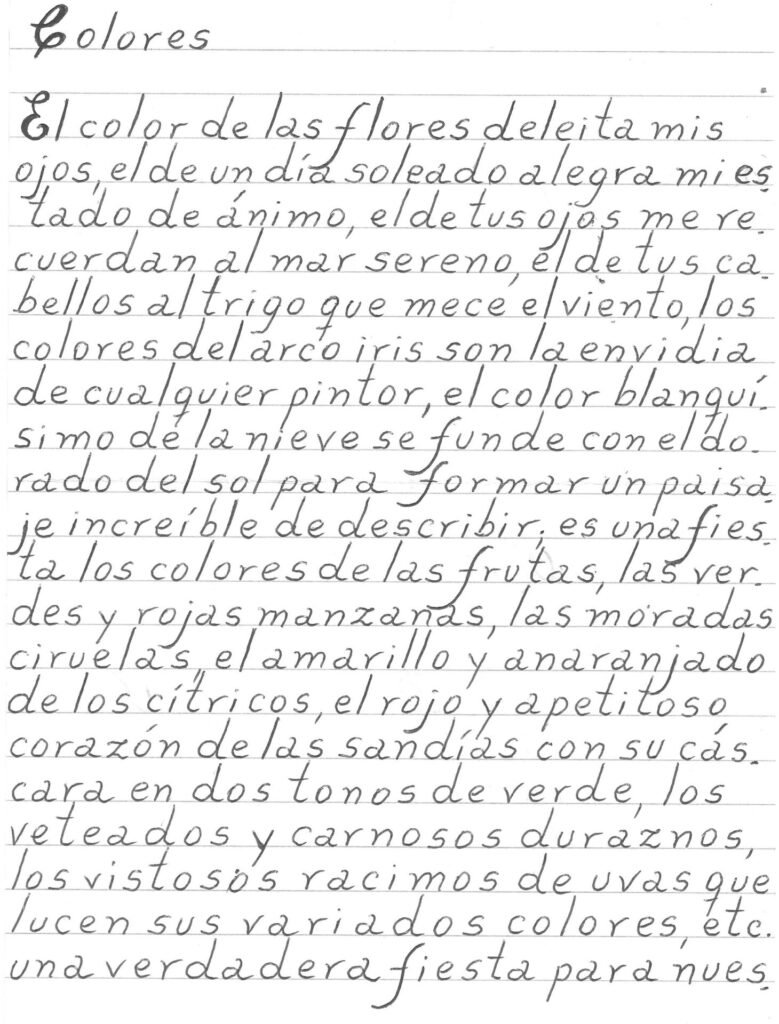 Colores
El color de las flores deleita mis
ojos, el de un día soleado alegra mi es-
tado de ánimo, el de tus ojos me re-
cuerdan al mar sereno, el de tus ca-
bellos al trigo que mece el viento, los
colores del arco iris son la envidia
de cualquier pintor, el color blanquí-
simo de la nieve se funde con el do-
rado del sol para formar un paisa-
je increíble de describir; es una fies-
ta los colores de las frutas, las ver-
des y rojas manzanas, las moradas
ciruelas, el amarillo y anaranjado
de los cítricos, el rojo y apetitoso
corazón de las sandías con su cás-
cara en dos tonos de verde, los
veteados y carnosos duraznos,
los vistosos racimos de uvas que
lucen sus variados colores, etc.
una verdadera fiesta para nues-